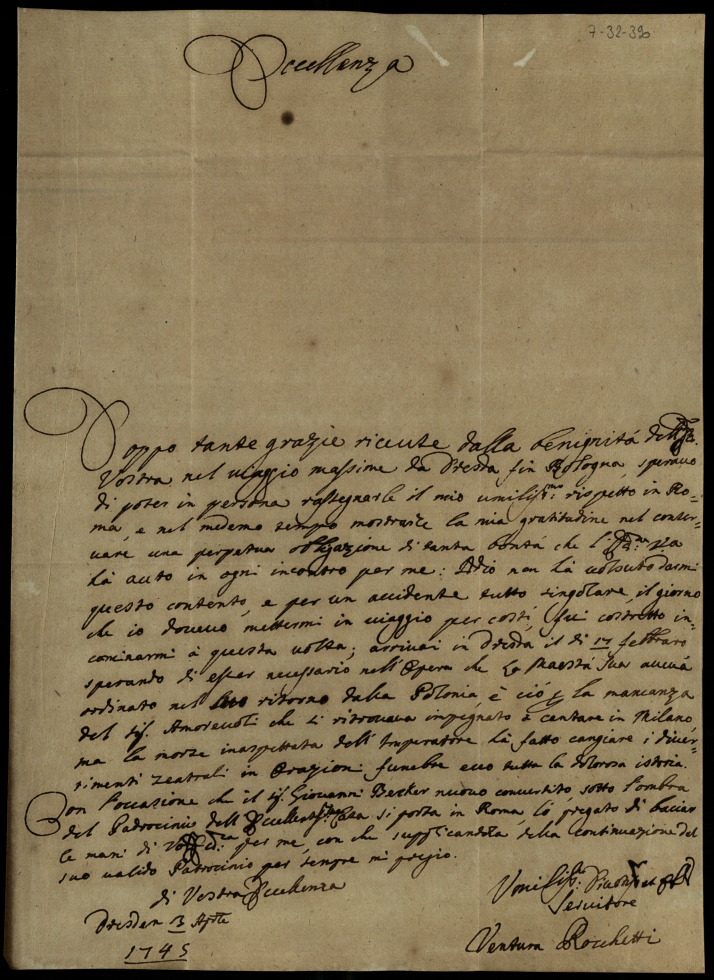 7-32-390
Eccellenza
Doppo tante grazie riceute dalla benignità dell'
Vostra nel viaggio massime da Dresda fin Bologna, speravo
di poter in persona rassegnarle il mio umiliss.mo rispetto in Ro=
ma, e nel medemo tempo mostrarle la mia gratitudine nel conser=
vare una perpetua obligazione di tanta bontà che l'
hà auto in ogni incontro per me: Idio non hà volsuto darmi
questo contento, e per un accidente tutto singolare, il giorno
che io dovevo mettermi in viaggio per costì, fui costretto in=
cominarmi à questa volta; arrivai in Dresda il di 17 febbraro
sperando di esser necessario nell'Opera che La Maestà Sua aveva
ordinato nel suo ritorno dalla Polonia, è ciò p la mancanza
del Sig. Amorevoli che si ritrovava impegnato è cantare in Milano
ma la morte inaspettata dell'Imperatore hà fatto cangiare i diver=
timenti teatrali in Orazioni funebre ecco tutta la dolorosa istoria.
Con l'occasione che il Sig. Giovanni Becker nuovo convertito, sotto l'ombra
del Patrocinio dell' si porta in Roma, lò pregato di baciar
le mani di per me, con che supplicandola della continuazione del
suo valido Patrocinio per sempre mi pregio.
di Vostra Eccellenza
Dresden 3 Aprile
1745
Servitore
Ventura Rocchetti